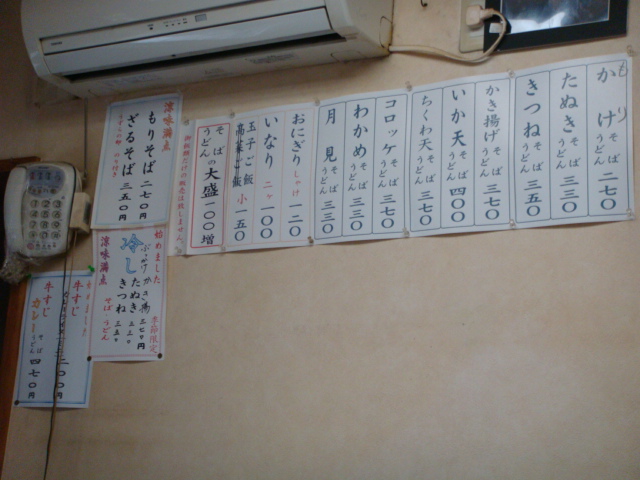 もり
かけ そば うどん 二七〇
たぬき そば うどん 三三〇
きつね そば うどん 三五〇
かき揚げ そば うどん 三七〇
いか天 そば うどん 四〇〇
ちくわ天 そば うどん 三七〇
コロッケ そば うどん 三七〇
わかめ そば うどん 三三〇
月見 そば うどん 三三〇
おにぎり しゃけ 一二〇
いなり 二ヶ 一〇〇
玉子ご飯
高菜ご飯 小 一五〇
そば うどん の大盛 一〇〇増
御飯類だけの販売は致しません。
涼味満点
もりそば 二七〇円
ざるそば 三五〇円
始めました 季節限定
ぶっかけ かき揚 三七〇円
冷し たぬき 三三〇
きつね 三五〇
涼味満点 そば・うどん
牛すじ
牛すじ
カレー そば うどん 四七〇円